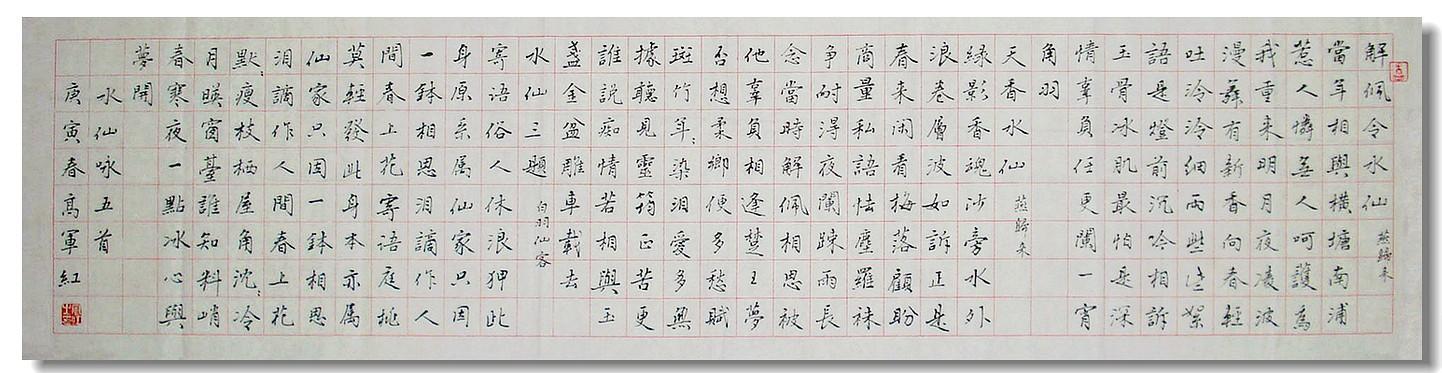 解佩令水仙 燕歸來
當年相與橫塘南浦
惹人憐無人呵護爲
我重來明月夜凌波
漫舞有新香向春輕
吐泠泠細雨些些絮
語是燈前沉吟相訴
玉骨冰肌最怕是深
情辜負任更闌一宵
角羽
天香水仙 燕歸來
綠影香魂沙旁水外
浪卷層波如訴正是
春來閑看梅落顧盼
商量私語怯塵羅袜
爭耐得夜闌踈雨長
念當時解佩相思被
他辜負相逢楚王夢
否想柔鄉便多愁賦
斑竹年々染泪愛多無
據聽見靈筠正苦更
誰說痴情若相與玉
盞金盆雕車載去
水仙三題 白羽仙客
寄語俗人休浪狎此
身原系属仙家只因
一鉢相思泪謫作人
間春上花寄語庭挑
莫輕發此身本亦属
仙家只因一鉢相思
泪謫作人間春上花
默々瘦枝栖屋角沈々冷
月暎窗臺誰知料峭
春寒夜一點冰心與
夢開
水仙咏五首
庚寅春高軍紅